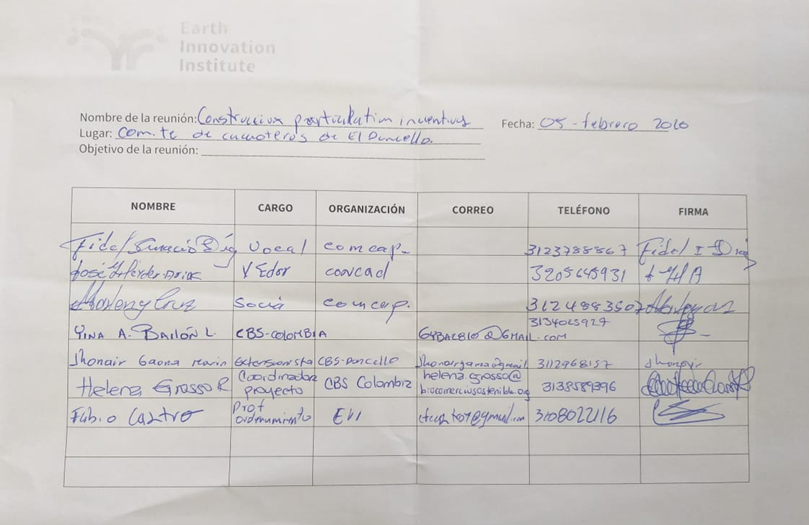 Earth
Innovation
Institute
Nombre de la reunión: Construccion incentivos Fecha: 05 - febrero 2020
Lugar: Comite de cacaoteros de El Doncello
Objetivo de la reunión:
NOMBRE CARGO ORGANIZACIÓN CORREO TELÉFONO FIRMA
Fidel Ignacio Vocal comcap 3123788867 Fidel I
José VEdor 3205645931
Marleny Cruz Socia comcap. 3124883507
YINA A. BAILÓN L. CBS-COLOMBIA GYBACB10@GMAIL.COM 3134025929
Jhonair Gaona Marin Extensionista CBS-Doncello 3112968157
Helena Grosso R Coordinadora proyecto CBS Colombia helena.grosso@biocomerciosostenible.org 3138589396
Fabio Castro Prof ordenamiento EII 3108022116